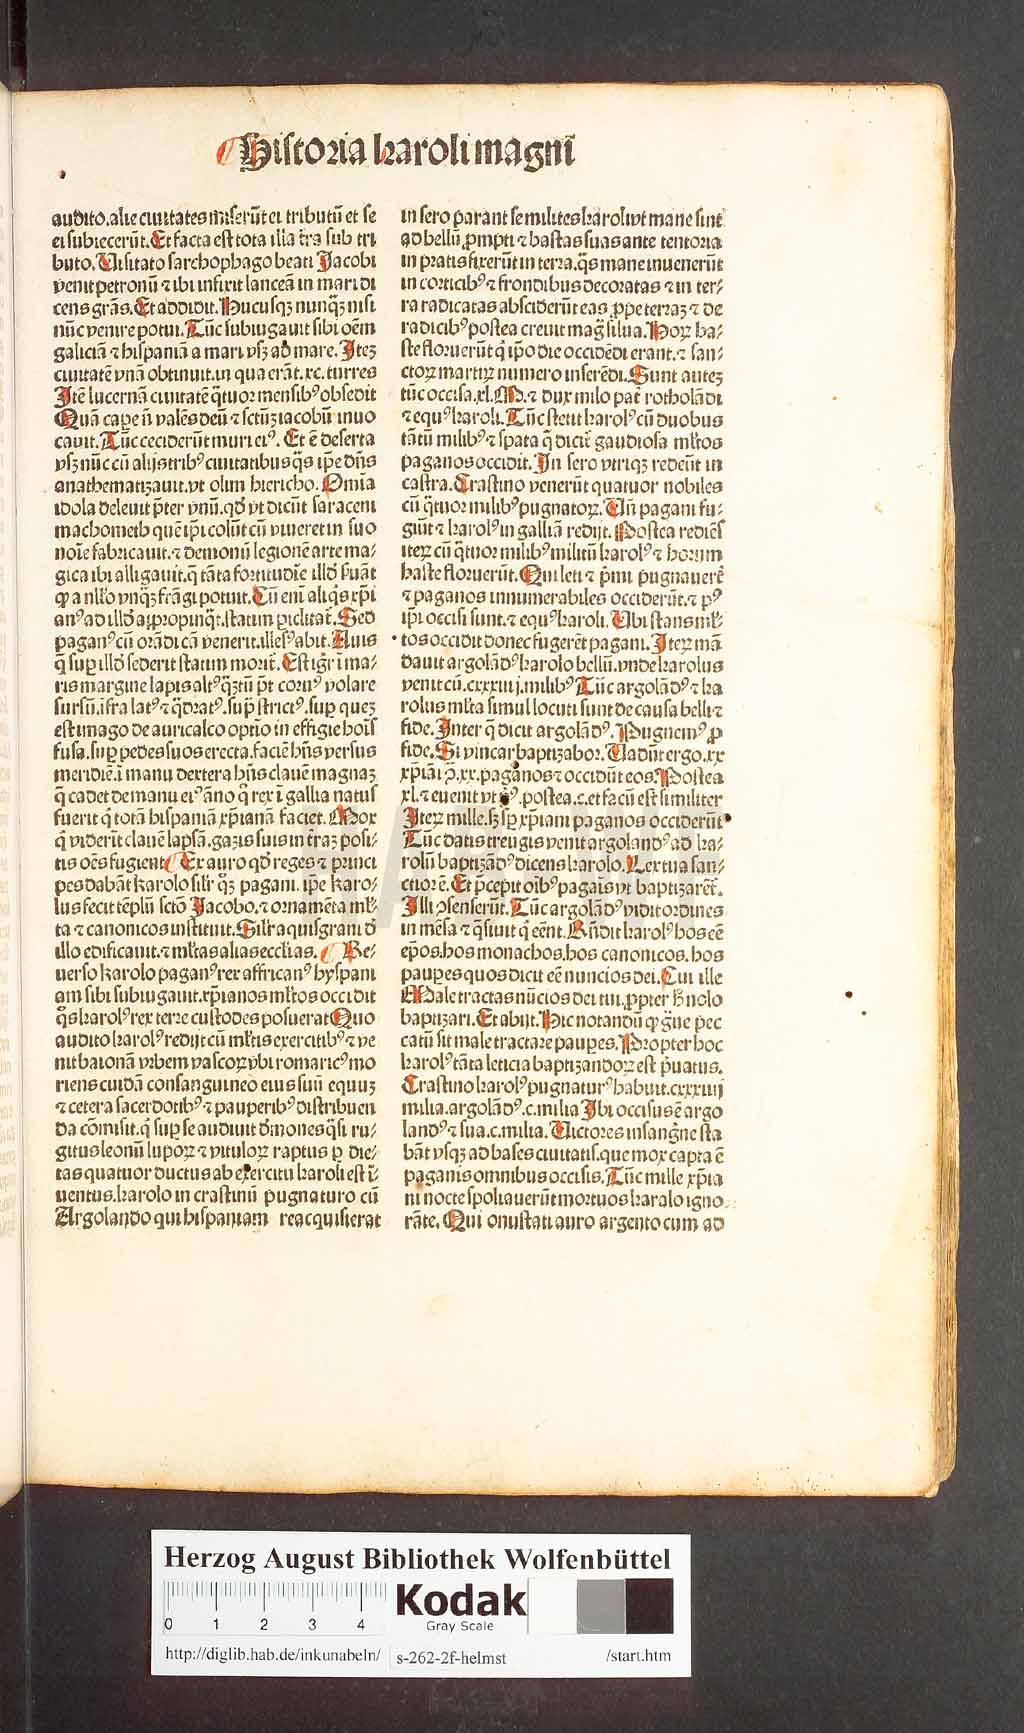 Historia karoli magni
audito.alie ciuitates miserūt ei tributū et se
ei subiecerūt.Et facta est tota illa t̄ra sub tri
buto.Uisitato sarchophago beati Jacobi
venit petronū ⁊ ibi infixit lanceā in mari di
cens grās.Et addidit.Hucusqꝫ nunq̄ꝫ nisi
nūc venire potui.Tūc subiugauit sibi oēm
galiciā ⁊ hispaniā a mari vsqꝫ ad mare.Iteꝫ
ciuitatē vnā obtinuit.in qua erāt.xc.turres
Itē lucernā ciuitatē q̄tuor mensibꝰ obsedit
Quā cape n̄ valēs deū ⁊ sctūꝫ iacobū inuo
cauit.Tūc ceciderūt muri eiꝰ. Et ē deserta
vsqꝫ nūc cū alijs tribꝰ ciuitatibus q̄s ip̄e dn̄s
anathematizauit.vt olim hiericho.Omīa
idola deleuit p̄ter vnū.qđ vt dicūt saraceni
machometh quē ip̄i colūt cū viueret in suo
noīe fabricauit.⁊ demonū legionē arte ma⸗
gica ibi alligauit.q̄ tāta fortitudīe illđ ẜuāt
ꝙ a nllo vnq̄ꝫ frāgi potuit.Cū eni aliq̄s xp̄i
anꝰ ad illđ aꝓpinq̄t.statim piclitat̄.Sed
paganꝰ cū orādi cā venerit.illesꝰ abit.Auis
q̄ suꝑ illđ sederit statim morit̄.Est igr̄ ī ma⸗
ris margine lapis altꝰ q̄ꝫtū p̄t coruꝰ volare
sursū.īfra latꝰ ⁊ q̄dratꝰ.sup̄ strictꝰ.suꝑ queꝫ
est imago de auricalco optīo in effigie hoīs
fusa.suꝑ pedes suos erecta.faciē hn̄s versus
meridiē.ī manu dextera hn̄s clauē magnaꝫ
q̄ cadet de manu eiꝰ āno q̄ rex ī gallia natus
fuerit q̄ totā hispaniā xp̄ianā faciet.Mox
q̄ viderīt clauē lapsā.gazis suis in t̄raꝫ posi⸗
tis oēs fugient Ex auro qđ reges ⁊ princi
pes dabāt karolo silr̄ q̄ꝫ pagani. ip̄e karo⸗
lus fecit tēplū sctō Jacobo.⁊ ornamēta ml̄⸗
ta ⁊ canonicos instituit.Silr̄ aquisgrani đ
illo edificauit.⁊ ml̄tas alias ecclias. Re⸗
uerso karolo paganꝰ rex affricanꝰ hyspani
am sibi subiugauit.xp̄ianos ml̄tos occidit
q̄s karolꝰ rex terre custodes posuerat Quo
audito karolꝰ redijt cū ml̄tis exercitibꝰ ⁊ ve
nit baionā vrbem vascoꝝ vbi romaricꝰ mo
riens cuidā consanguineo eius suū equuꝫ
⁊ cetera sacerdotibꝰ ⁊ pauperibꝰ distribuen
da cōmisit.q̄ suꝑ se audiuit đmones q̄si ru⸗
gitus leonū lupoꝝ ⁊ vituloꝝ raptus ꝑ die⸗
tas quatuor ductus ab exercitu karoli est ī⸗
uentus.karolo in crastinū pugnaturo cū
Argolando qui hispaniam reacquisierat
in sero parant se milites karoli vt mane sint
ad bellū ꝓmpti ⁊ hastas suas ante tentoria
in pratis fixerūt in terra.q̄s mane inuenerūt
in corticibꝰ ⁊ frondibus decoratas ⁊ in ter⸗
ra radicatas absciderūt eas ꝓpe terraꝫ ⁊ de
radicibꝰ postea creuit mag̃ silua.Hoꝝ ha⸗
ste floruerūt q̄ ip̄o die occidēdi erant.⁊ san⸗
ctoꝝ martiꝝ numero inserēdi.Sunt auteꝫ
tūc occisa.xl.M.⁊ dux milo pat̄ rotholādi
⁊ equꝰ karoli.Tūc stetit karolꝰ cū duobus
tātū milibꝰ ⁊ spata q̄ dicit̄ gaudiosa ml̄tos
paganos occidit.In sero vtriqꝫ redeūt in
castra.Crastino venerūt quatuor nobiles
cū q̄tuor milibꝰ pugnatoꝝ.Uñ pagani fu⸗
giūt ⁊ karolꝰ in galliā redijt.Postea rediēs
iteꝝ cū q̄tuor milibꝰ militū karolꝰ ⁊ horum
haste floruerūt.Qui leti ⁊ p̄mi pugnauert̄
⁊ paganos innumerabiles occiderūt.⁊ pꝰ
ip̄i occisi sunt.⁊ equꝰ karoli.Ubi stans ml̄⸗
tos occidit donec fugerēt pagani.Iteꝝ mā
dauit argolādꝰ karolo bellū.vnde karolus
venit cū.cxxxiiij.milibꝰ Tūc argolādꝰ ⁊ ka
rolus ml̄ta simul locuti sunt de causa belli ⁊
fide.Inter q̄ dicit argolādꝰ.Pugnemꝰ ꝓ
fide.Si vincar baptizabor.Uadūt ergo.xx
xp̄iāi ꝯ.xx.paganos ⁊ occidūt eos.Postea
xl.⁊ euenit vt pꝰ.postea.c.et facū est similiter
Iteꝝ mille.sꝫ sp̄ xp̄iani paganos occiderūt
Tūc datis treugis venit argolandꝰ ad ka⸗
rolū baptizādꝰ dicens karolo.Lex tua san⸗
ctior ē.Et p̄cepit oībꝰ pagāis vt baptizarēt̄.
Illi ꝯsenserūt.Tūc argolādꝰ vidit ordines
in mēsa ⁊ q̄siuit q̄ eēnt.Rn̄dit karolꝰ hos eē
ep̄os.hos monachos.hos canonicos.hos
pauꝑes quos dicit eē nuncios dei.Cui ille
Male tractas nūcios dei tui.ꝓpter h̄ nolo
baptizari.Et abijt.Hic notandū ꝙ g̃ue pec
catū sit male tractare pauꝑes.Propter hoc
karolꝰ tāta leticia baptizandoꝝ est p̄uatus.
Crastino karolꝰ pugnaturꝰ habuit.cxxxiiij
milia.argolādꝰ.c.milia Ibi occisus ē argo
landꝰ ⁊ sua.c.milia.Uictores in sang̃ne sta
bāt vsqꝫ ad bases ciuitatis.que mox capta ē
paganis omnibus occisis.Tūc mille xp̄ia
ni nocte spoliauerūt mortuos karalo igno
rāte.Qui onustati auro argento cum ad
Herzog August Bibliothek Wolfenbüttel
0 1 2 3 4
Kodak
Gray Scale
http://diglib.hab.de/inkunabeln/ s-262-2f-helmst /start.htm